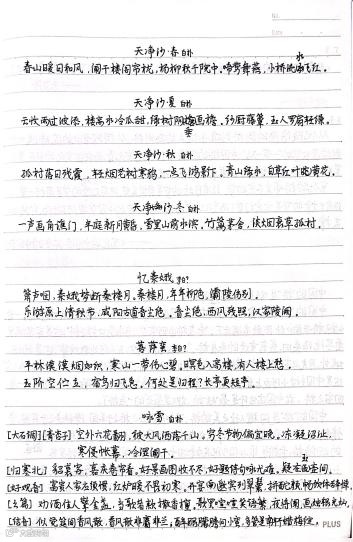 天净沙·春 白朴
春山暖日和风，阑干楼阁帘栊，杨柳秋千院中。啼莺舞燕，小桥流水飞红。
天净沙·夏 白朴
云收雨过波添，楼高水冷瓜甜，绿树阴垂画檐。纱厨藤簟，玉人罗扇轻缣。
天净沙·秋 白朴
孤村落日残霞，轻烟老树寒鸦，一点飞鸿影下。青山绿水，白草红叶黄花。
天净沙·冬 白朴
一声画角谯门，半庭新月黄昏，雪里山前水滨。竹篱茅舍，淡烟衰草孤村。
忆秦娥 李白?
箫声咽，秦娥梦断秦楼月。秦楼月，年年柳色，灞陵伤别。
乐游原上清秋节，咸阳古道音尘绝。音尘绝，西风残照，汉家陵阙。
菩萨蛮 李白?
平林漠漠烟如织，寒山一带伤心碧。暝色入高楼，有人楼上愁。
玉阶空伫立，宿鸟归飞急。何处是归程？长亭更短亭。
咏雪 白朴
[大石调][青杏子]空外六花翻，被大风洒落千山。穷冬节物偏宜晚。冻凝沼沚，
寒侵帐幕，冷湿阑干。
[归塞北]貂裘客，嘉庆卷帘看。好景画图收不尽，好题诗句咏尤难。疑在玉壶间。
[好观音]富贵人家应须惯，红炉暖不畏初寒。开宴邀宾列翠鬟，拚酡颜，畅饮休辞惮。
[幺篇]劝酒佳人擎金盏，当歌者款撒香檀，歌罢喧喧笑语繁，夜将阑，画烛银光灿。
[结音]似觉筵间香风散，香风散非麝非兰，醉眼朦腾问小蛮，多管是南轩蜡梅绽。
PLUS